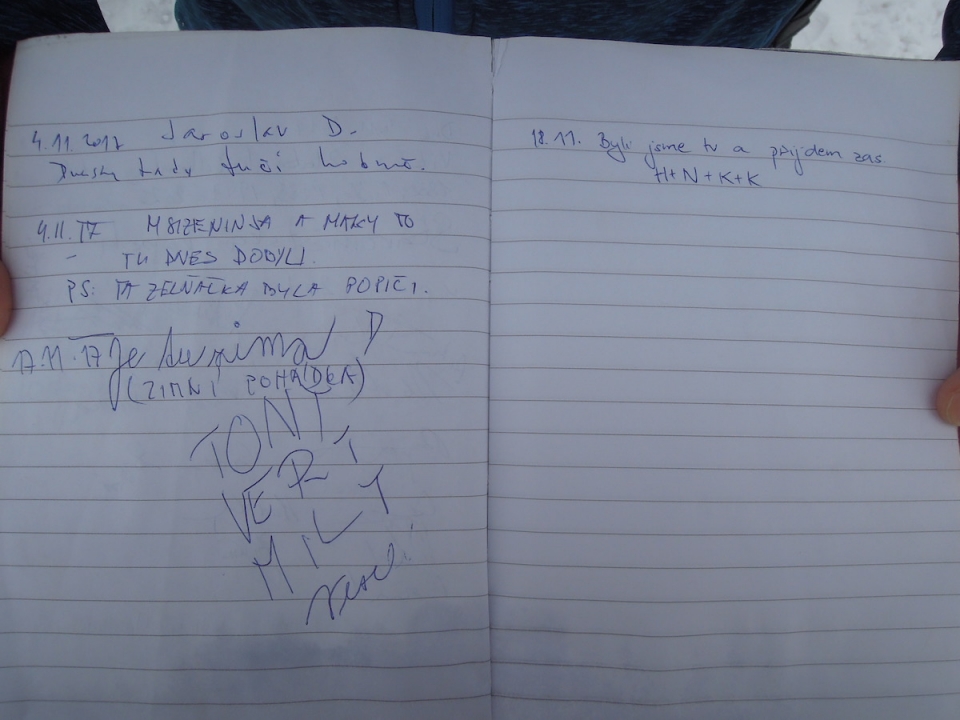 4.11.2017 Jaroslav D.
tady
4.11.17 A MAKY TO
- TU DNES DOBYLI.
PS: TA ZELŇAČKA BYLA POPIČI.
17.11.17 Je tu zima :D
(ZIMNÍ POHÁDKA)
TONY
VERT
MILY
18.11. Byli jsme tu a přijdem zas
H+N+K+K